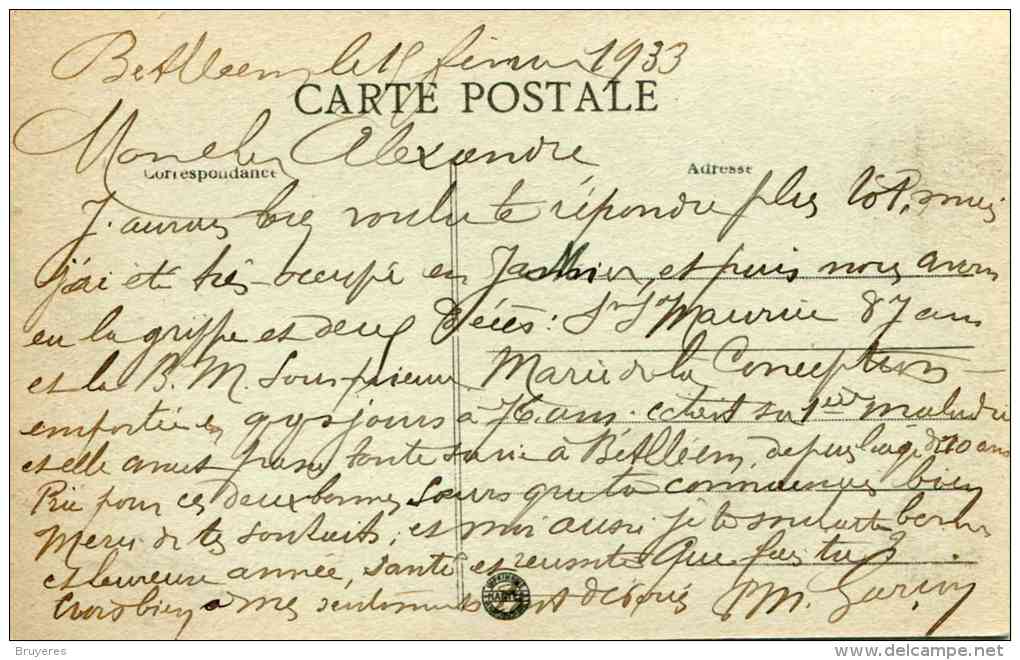 Betlleem, le 15 février 1933
CARTE POSTALE
Mon cher Alexandre
Correspondance
Adresse
J'aurais bien voulu te répondre plus tôt, mais
j'ai été très occupé en Janvier, et puis nous avons
eu la grippe et deux Décès: Sr St Maurice 87 ans
et la B. M. Sous prieure Marie de la Conception
emportée en qq jours à 76 ans. c'était sa 1ère maladie
et elle avait passé toute sa vie à Betlléem, depuis l'âge de 20 ans
Prie pour ces deux bonnes Sœurs que tu connaissais bien
Merci de tes souhaits, et moi aussi je te souhaite bonne
et heureuse année, santé et réussite Que fais tu?
Crois bien à mes sentiments dévoués
MARTEL
Bruyeres
delcampe.net